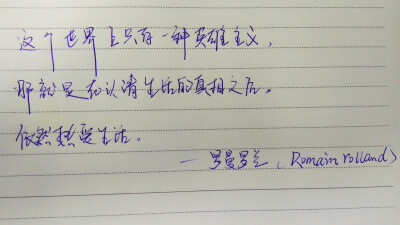 这个世界上只有一种英雄主义,
那就是在认清生活的真相之后,
依然热爱生活。
— 罗曼罗兰 (Romain rolland)